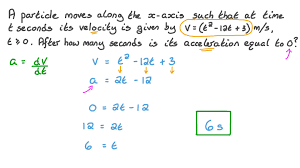 A particle moves along the x-axis such that at time
t seconds its velocity is given by v = (t² - 12t + 3) m/s,
t ≥ 0. After how many seconds is its acceleration equal to 0?
a = dv/dt
v = t² - 12t + 3
a = 2t - 12
0 = 2t - 12
12 = 2t
6 = t
6 s